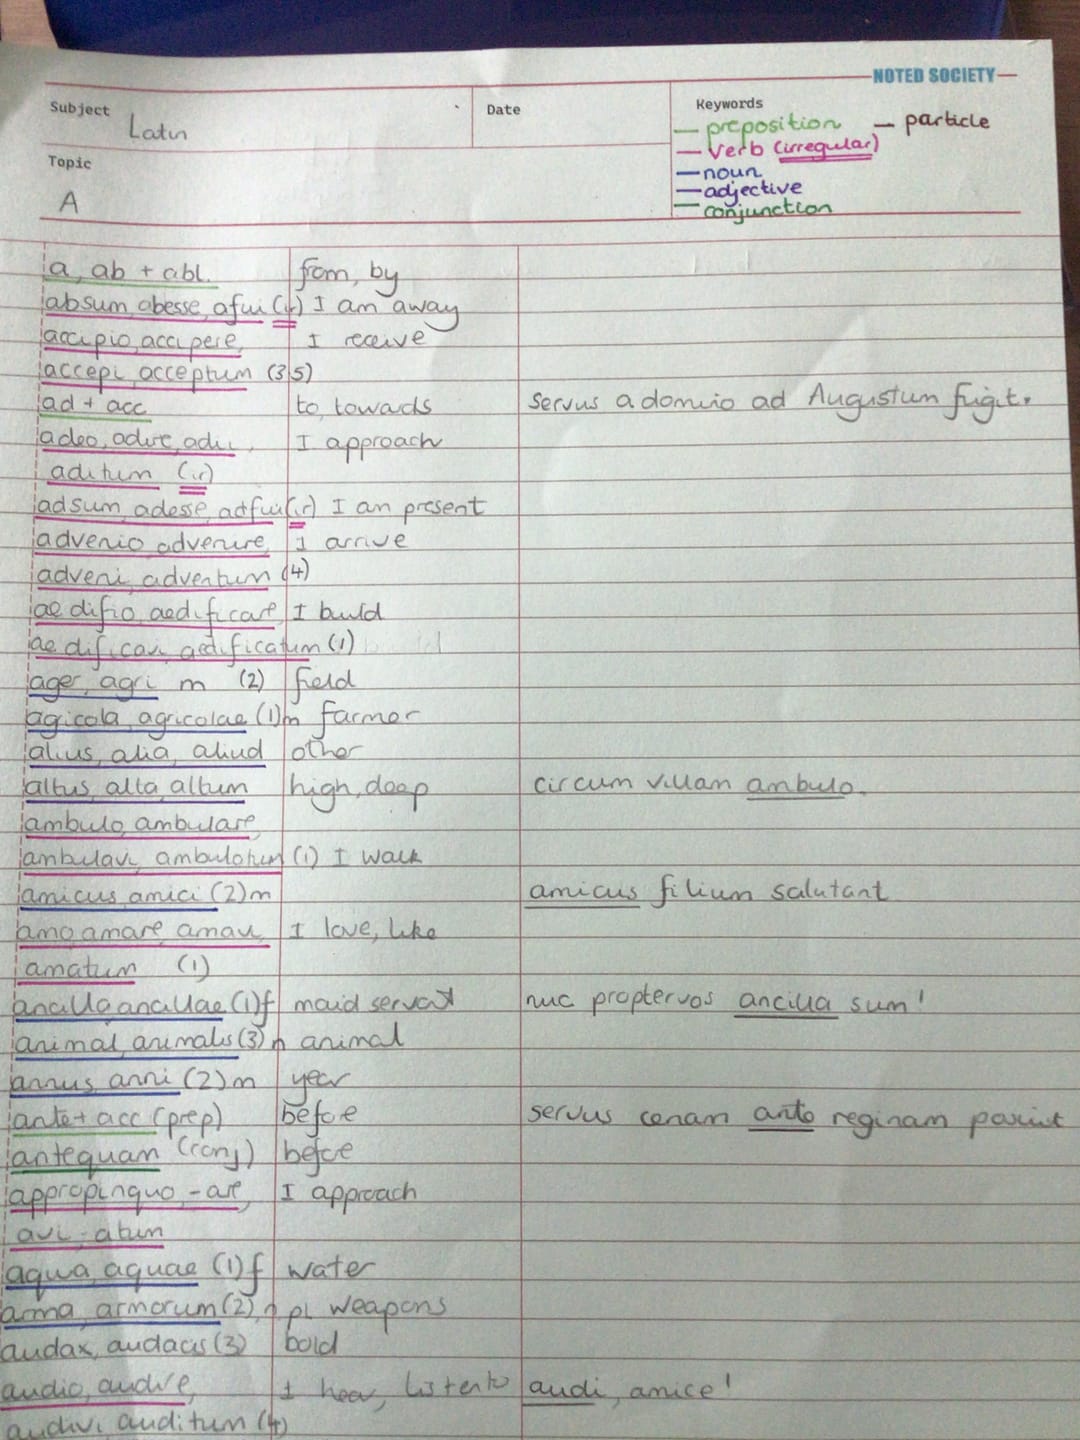 NOTED SOCIETY
Subject Latin
Date
Keywords
preposition
particle
verb (irregular)
noun
adjective
conjunction
Topic
A
a, ab + abl. from, by
absum abesse, afui (ir) I am away
accipio, accipere, I receive
accepi, acceptum (3.5)
ad + acc to, towards servus a domino ad Augustum fugit.
adeo, adire, adii, I approach
aditum (ir)
adsum, adesse, adfui (ir) I am present
advenio advenire, I arrive
adveni, adventum (4)
aedifio, aedificare I build
aedificavi, aedificatum (1)
ager, agri m (2) field
agicola, agricolae (1)m farmer
alius, alia, aliud other
altus, alta, altum high, deep circum villam ambulo.
ambulo, ambulare,
ambulavi, ambulatum (1) I walk
amicus amici (2)m amicus filium salutant
amo amare, amavi, I love, like
amatum (1)
ancilla ancillae (1)f maid servant nuc proptervos ancilla sum!
animal, animalis (3) n animal
annus, anni (2)m year
ante + acc (prep) before servus cenam ante reginam
antequam (conj) before
appropinquo, -are, I approach
avi -atum
aqua, aquae (1)f water
arma, armorum (2) n pl weapons
audax, audacis (3) bold
audio, audire, I hear, listen to audi, amice!
audivi auditum (4)